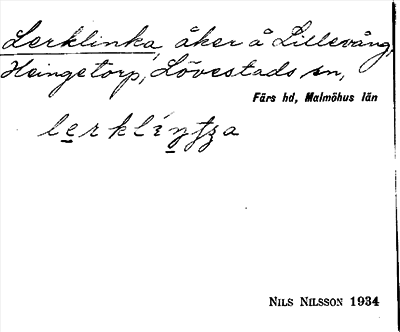 Lerklinka, åker å Lillevång,
Heingetorp, Lövestads sn,
Färs hd, Malmöhus län
NILS NILSSON 1934